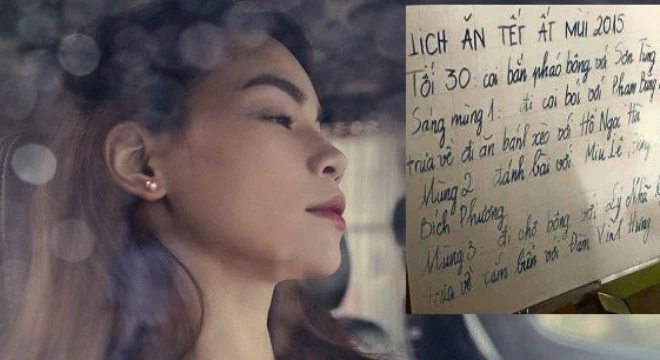 LỊCH ĂN TẾT ẤT MÙI 2015
Tối 30: coi bắn pháo bông với Sơn Tùng
Sáng mùng 1: đi coi bói với Phạm
trưa về đi ăn bánh xèo với Hồ Ngọc Hà
Mùng 2: đánh bài với Miu Lê,
Bích Phương
Mùng 3: đi chợ bông với Lý Nhã
trưa về tắm biển với Đàm Vĩnh Hưng